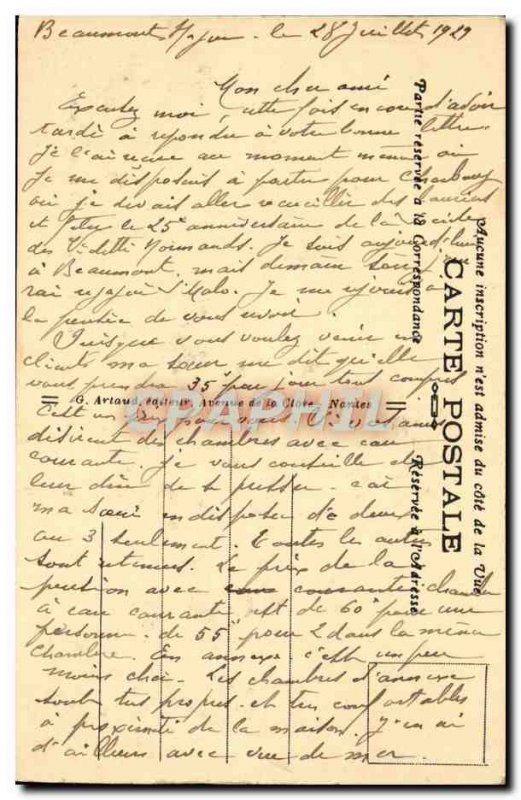 Beaumont Hague le 28 Juillet 1929
Mon cher ami
Excusez moi, cette fois encore d'avoir
tardé à répondre à votre bonne lettre
Je l'ai reçue au moment même où
Je me disposais à partir pour Cherbourg
où je devais aller recueillir des lauriers
et fêter le 25e anniversaire de la
des Normands. Je suis aujourd'hui
à Beaumont, mais demain soir je
rai St Malo. Je me réjouis à
la pensée de vous revoir.
Puisque vous voulez venir en
clients ma sœur me dit qu'elle
vous prendra 35f par jour tout compris
C'est un
désirent des chambres avec eau
courante. je vous conseille de
leur dire de se presser car
ma sœur en dispose de deux
ou 3 seulement. Toutes les autres
sont retenues. Le prix de la
pension avec chambre
à eau courante est de 60f pour une
personne. de 55f pour 2 dans la même
chambre. En annexe c'est un peu
moins cher. Les chambres d'annexe
sont très propres et très confortables
à proximité de la maison. J'en ai
d'ailleurs avec vue de mer.
G. Artaud, éditeur, Avenue de la Close - Nantes
Aucune inscription n'est admise du côté de la Vue
CARTE POSTALE
Partie réservée à la Correspondance
Réservée à l'Adresse